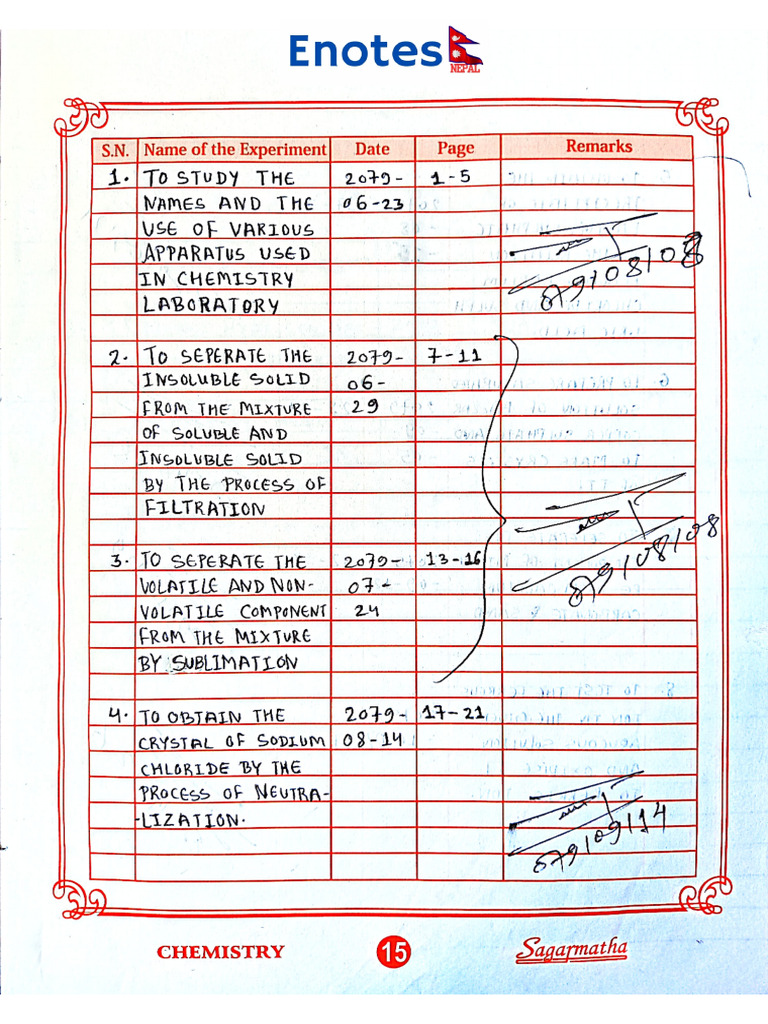 Enotes
NEPAL
S.N. Name of the Experiment Date Page Remarks
1. TO STUDY THE 2079- 1-5
NAMES AND THE 06-23
USE OF VARIOUS
APPARATUS USED
IN CHEMISTRY
LABORATORY
079/08/08
2. TO SEPERATE THE 2079- 7-11
INSOLUBLE SOLID 06-
FROM THE MIXTURE 29
OF SOLUBLE AND
INSOLUBLE SOLID
BY THE PROCESS OF
FILTRATION
079/08/08
3. TO SEPERATE THE 2079- 13-16
VOLATILE AND NON- 07-
VOLATILE COMPONENT 24
FROM THE MIXTURE
BY SUBLIMATION
4. TO OBTAIN THE 2079- 17-21
CRYSTAL OF SODIUM 08-14
CHLORIDE BY THE
PROCESS OF NEUTRA-
-LIZATION.
079/09/14
CHEMISTRY 15 Sagarmatha